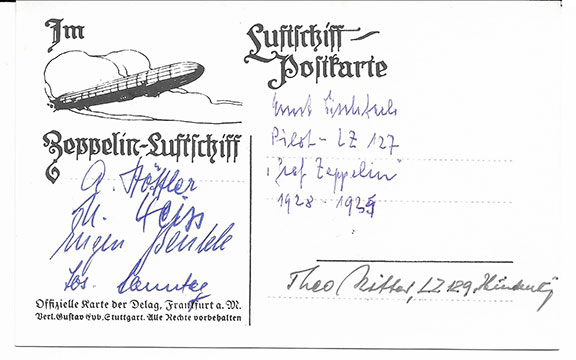 Im
Zeppelin-Luftschiff
Luftschiff-
Postkarte
Ernst
Pilot - LZ 127
"Graf Zeppelin"
1928 - 1935
A. Höffler
Eugen Bentele
Jos.
Theo Ritter, LZ 129 Hindenburg
Offizielle Karte der Delag, Frankfurt a. M.
Verl. Gustav Eyb. Stuttgart. Alle Rechte vorbehalten